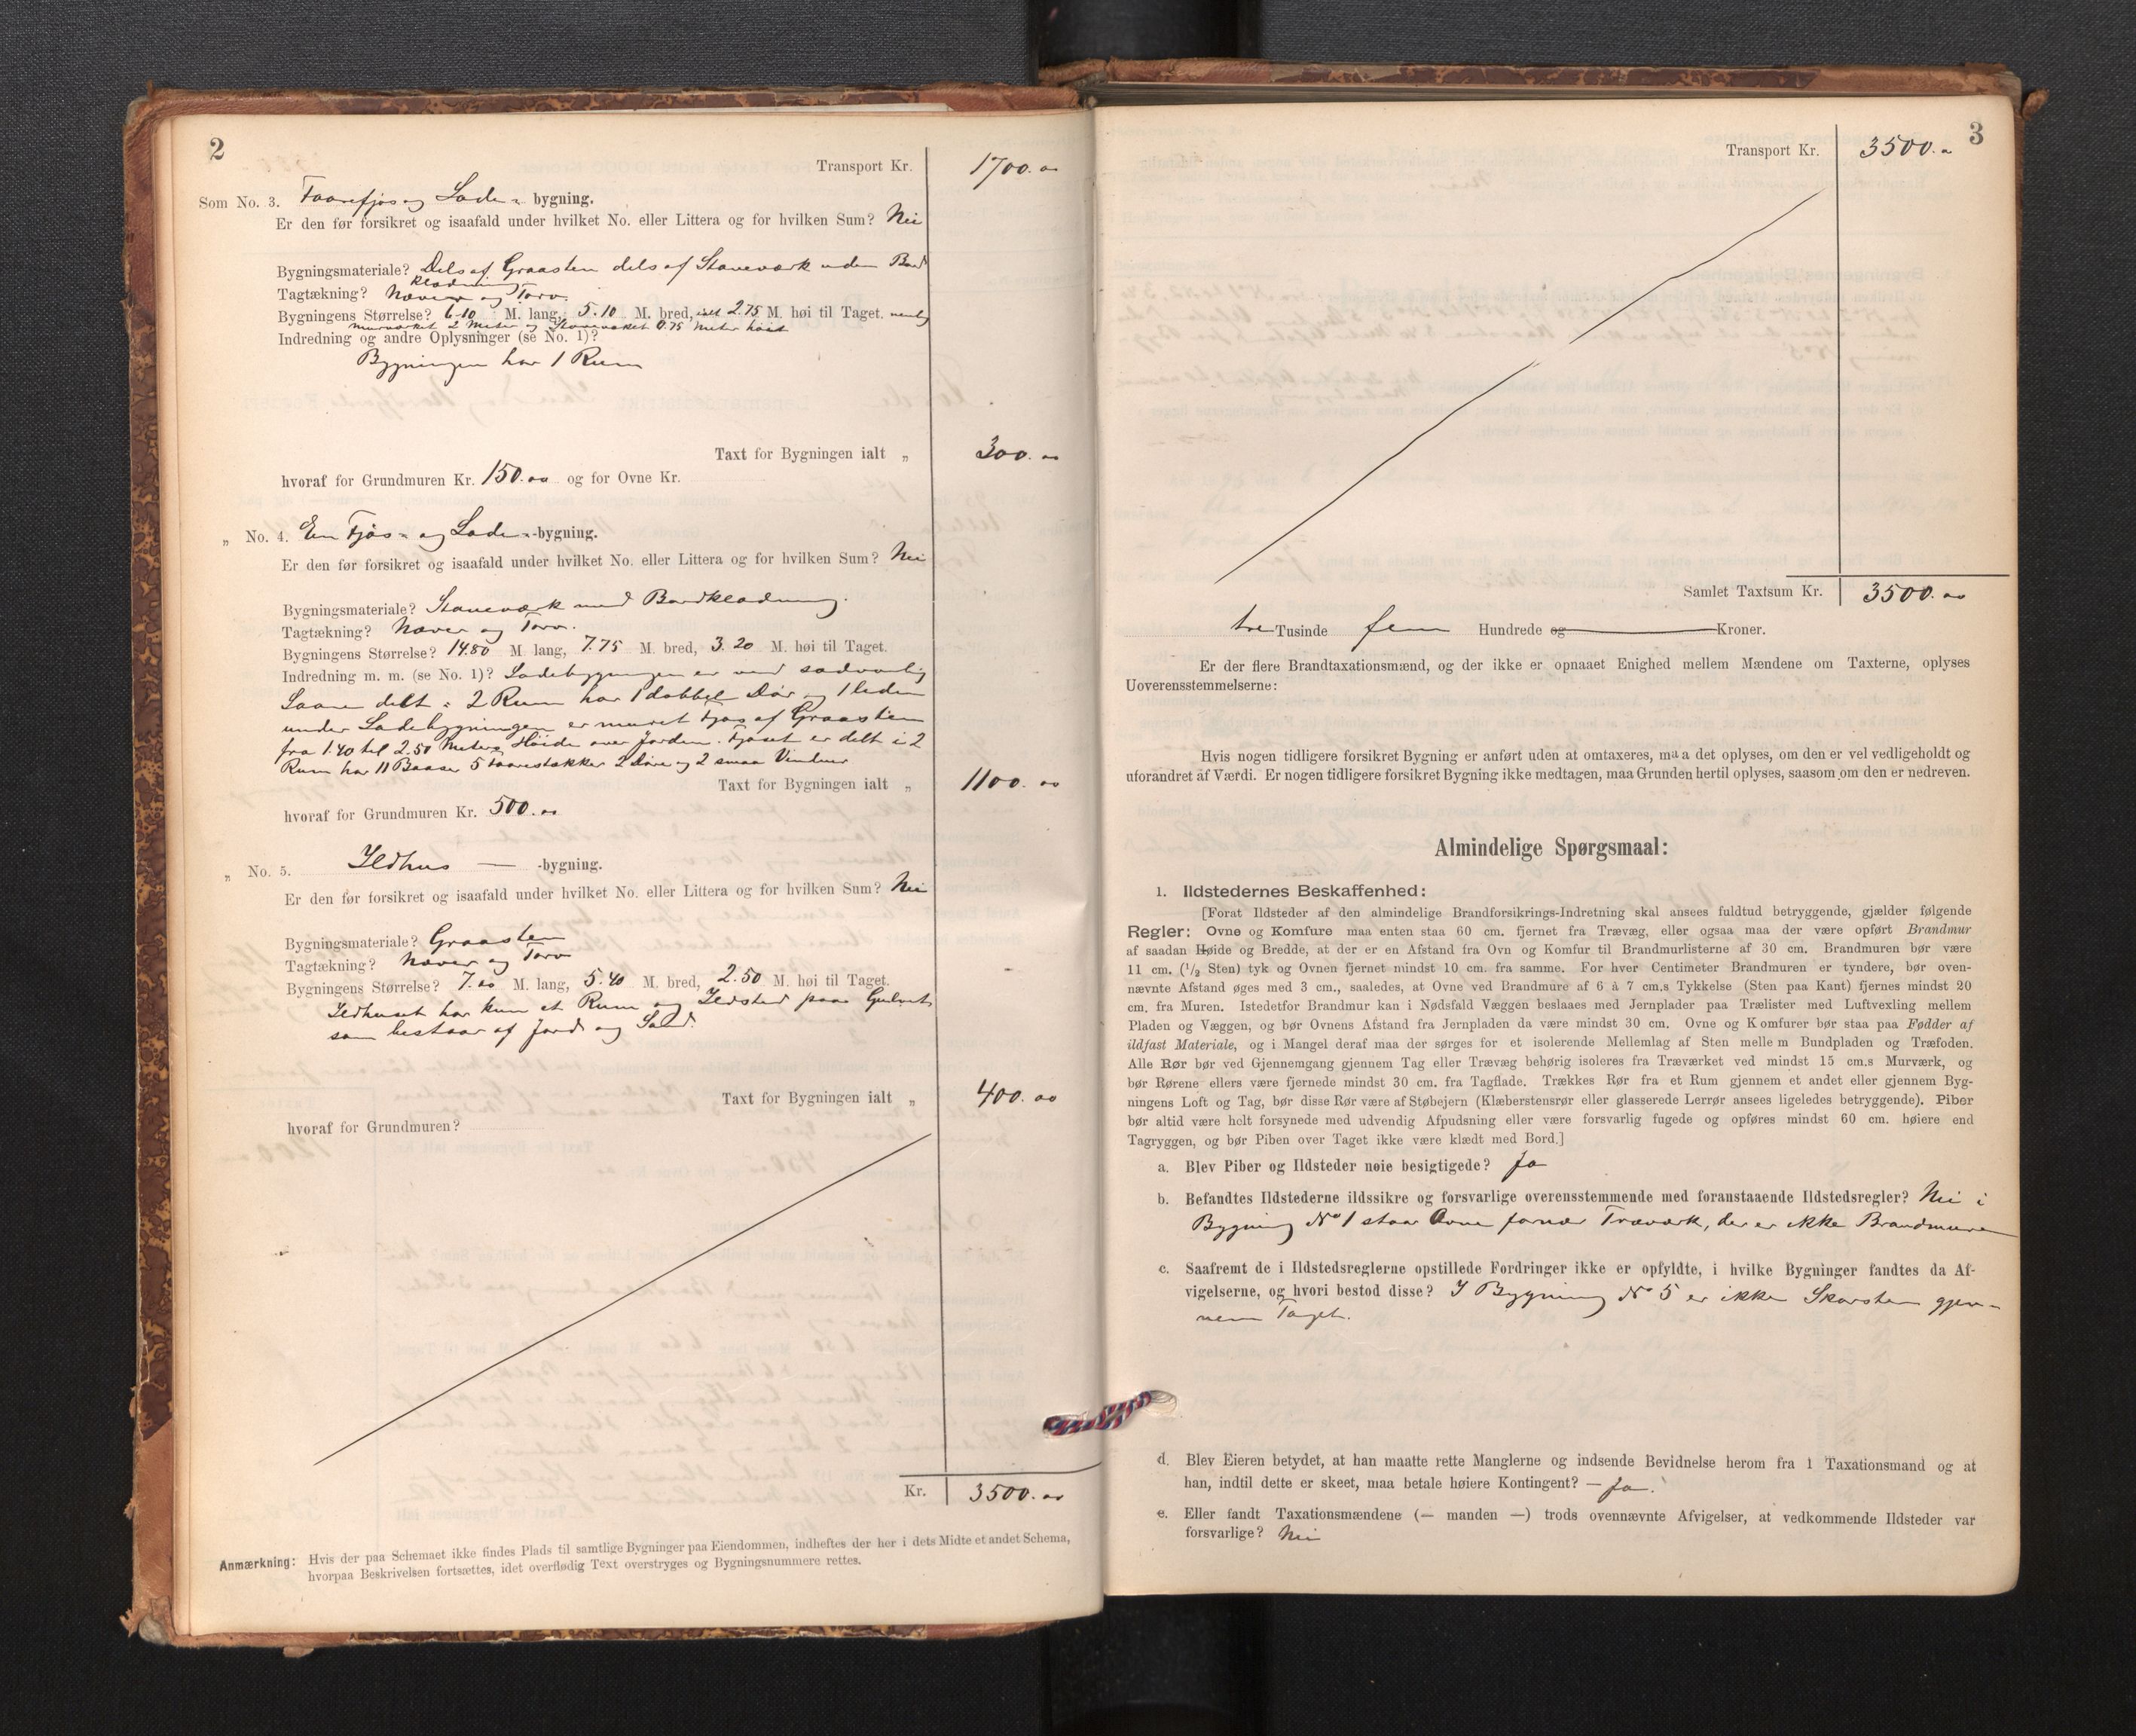 2
Transport Kr. 1700.00
Som No. 3. Faarefjøs og Lade- bygning.
Er den før forsikret og isaafald under hvilket No. eller Littera og for hvilken Sum? Nei
Bygningsmateriale? Dels af Graasten dels af Staveværk uden Bord
klædning
Tagtækning? Næver og Torv.
Bygningens Størrelse? 6.10 M. lang, 5.10 M. bred, ialt 2.75 M. høi til Taget. nemlig
murværket 2 Meter og Staveværket 0.75 Meter høit
Indredning og andre Oplysninger (se No. 1)?
Bygningen har 1 Rum
Taxt for Bygningen ialt „ 300.00
hvoraf for Grundmuren Kr. 150.00 og for Ovne Kr.
„ No. 4. En Fjøs- og Lade- -bygning.
Er den før forsikret og isaafald under hvilket No. eller Littera og for hvilken Sum? Nei
Bygningsmateriale? Staveværk med Bordklædning.
Tagtækning? Næver og Torv.
Bygningens Størrelse? 14.80 M. lang, 7.75 M. bred, 3.20 M. høi til Taget.
Indredning m. m. (se No. 1)? Ladebygningen er ved sædvanlig
Laave delt i 2 Rum har 1 dobbel Dør og 1 leden
under Ladebygningen er muret Fjøs af Graasten
fra 1.40 til 2.50 Meters Høide over Jorden. Fjøset er delt i 2
Rum har 11 Baaser 5 2 Døre og 2 smaa Vinduer
Taxt for Bygningen ialt „ 1100.00
hvoraf for Grundmuren Kr. 500.00
„ No. 5. Ildhus — -bygning.
Er den før forsikret og isaafald under hvilket No. eller Littera og for hvilken Sum? Nei
Bygningsmateriale? Graasten
Tagtækning? Næver og Torv
Bygningens Størrelse? 7.00 M. lang, 5.40 M. bred, 2.50 M. høi til Taget.
Ildhuset har kun et Rum og Ildsted paa Gulvet,
som bestaar af Jord og
Taxt for Bygningen ialt „ 400.00
hvoraf for Grundmuren?
Kr. 3500.00
Anmærkning: Hvis der paa Schemaet ikke findes Plads til samtlige Bygninger paa Eiendommen, indheftes der her i dets Midte et andet Schema,
hvorpaa Beskrivelsen fortsættes, idet overflødig Text overstryges og Bygningsnummere rettes.
3
Transport Kr. 3500.00
Samlet Taxtsum Kr. 3500.00
tre Tusinde fem Hundrede og Kroner.
Er der flere Brandtaxationsmænd, og der ikke er opnaaet Enighed mellem Mændene om Taxterne, oplyses
Uoverensstemmelserne:
Hvis nogen tidligere forsikret Bygning er anført uden at omtaxeres, maa det oplyses, om den er vel vedligeholdt og
uforandret af Værdi. Er nogen tidligere forsikret Bygning ikke medtagen, maa Grunden hertil oplyses, saasom om den er nedreven.
Almindelige Spørgsmaal:
1. Ildstedernes Beskaffenhed:
[Forat Ildsteder af den almindelige Brandforsikrings-Indretning skal ansees fuldtud betryggende, gjælder følgende
Regler: Ovne og Komfure maa enten staa 60 cm. fjernet fra Trævæg, eller ogsaa maa der være opført Brandmur
af saadan Høide og Bredde, at der er en Afstand fra Ovn og Komfur til Brandmurlisterne af 30 cm. Brandmuren bør være
11 cm. (1/2 Sten) tyk og Ovnen fjernet mindst 10 cm. fra samme. For hver Centimeter Brandmuren er tyndere, bør oven-
nævnte Afstand øges med 3 cm., saaledes, at Ovne ved Brandmure af 6 à 7 cm.s Tykkelse (Sten paa Kant) fjernes mindst 20
cm. fra Muren. Istedetfor Brandmur kan i Nødsfald Væggen beslaaes med Jernplader paa Trælister med Luftvexling mellem
Pladen og Væggen, og bør Ovnens Afstand fra Jernpladen da være mindst 30 cm. Ovne og Komfurer bør staa paa Fødder af
ildfast Materiale, og i Mangel deraf maa der sørges for et isolerende Mellemlag af Sten mellem Bundpladen og Træfoden.
Alle Rør bør ved Gjennemgang gjennem Tag eller Trævæg behørig isoleres fra Træværket ved mindst 15 cm.s Murværk, og
bør Rørene ellers være fjernede mindst 30 cm. fra Tagflade. Trækkes Rør fra et Rum gjennem et andet eller gjennem Byg-
ningens Loft og Tag, bør disse Rør være af Støbejern (Klæberstensrør eller glasserede Lerrør ansees ligeledes betryggende). Piber
bør altid være helt forsynede med udvendig Afpudsning eller være forsvarlig fugede og opføres mindst 60 cm. høiere end
Tagryggen, og bør Piben over Taget ikke være klædt med Bord.]
a. Blev Piber og Ildsteder nøie besigtigede? Ja
b. Befandtes Ildstederne ildssikre og forsvarlige overensstemmende med foranstaaende Ildstedsregler? Nei i
Bygning No 1 staar Ovne fornær Træværk, der er ikke Brandmure
c. Saafremt de i Ildstedsreglerne opstillede Fordringer ikke er opfyldte, i hvilke Bygninger fandtes da Af-
vigelserne, og hvori bestod disse? I Bygning No 5 er ikke Skorsten gjen-
nem Taget.
d. Blev Eieren betydet, at han maatte rette Manglerne og indsende Bevidnelse herom fra 1 Taxationsmand og at
han, indtil dette er skeet, maa betale høiere Kontingent? — Ja.
e. Eller fandt Taxationsmændene (— manden —) trods ovennævnte Afvigelser, at vedkommende Ildsteder var
forsvarlige? Nei